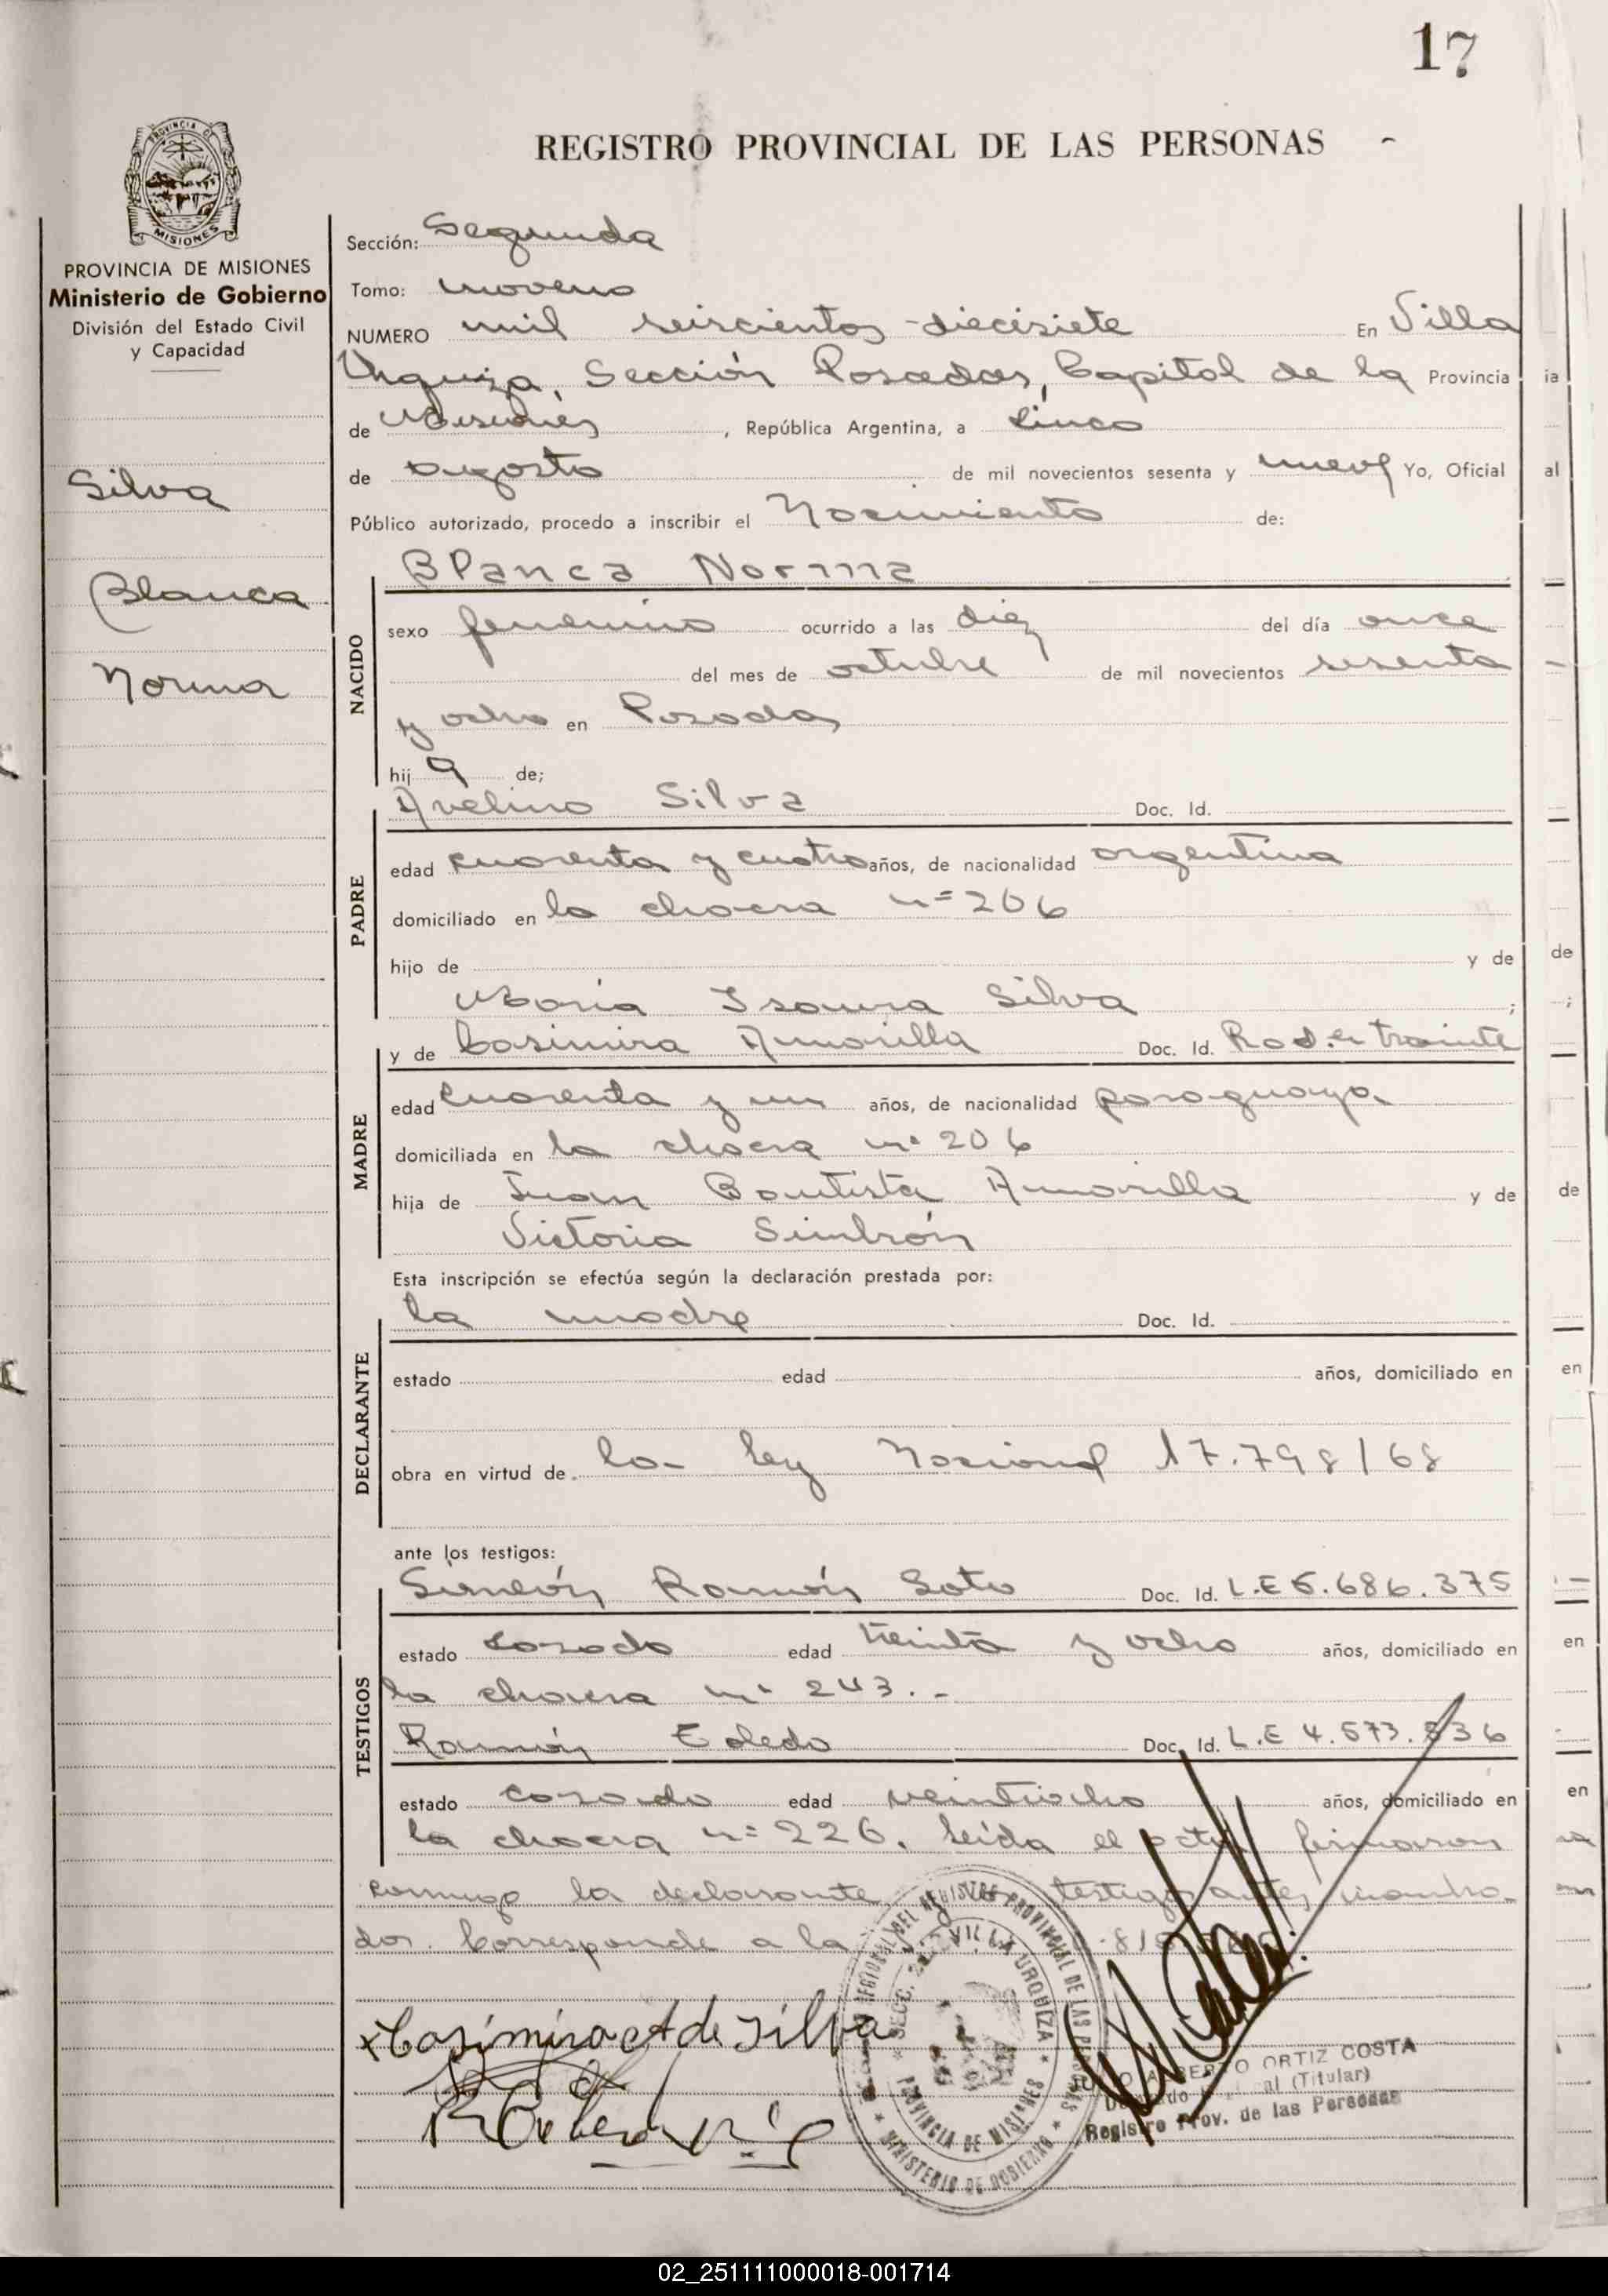 17
REGISTRO PROVINCIAL DE LAS PERSONAS
PROVINCIA DE MISIONES
Ministerio de Gobierno
División del Estado Civil
y Capacidad
Silva
Blanca
Norma
Sección: Segunda
Tomo: noveno
NUMERO mil seiscientos diecisiete En Villa
Urquiza, Sección Posadas, Capital de la Provincia
de Misiones, República Argentina, a cinco
de agosto de mil novecientos sesenta y nueve Yo, Oficial
Público autorizado, procedo a inscribir el Nacimiento de:
NACIDO
Blanca Norma
sexo femenino ocurrido a las diez del día once
del mes de octubre de mil novecientos sesenta
y ocho en Posadas
hij a de;
PADRE
Avelino Silva Doc. Id.
edad cuarenta y cuatro años, de nacionalidad argentina
domiciliado en la chacra nº 206
hijo de y de
María Isaura Silva ;
MADRE
y de Casimira Amarilla Doc. Id.
edad cuarenta y un años, de nacionalidad paraguaya
domiciliada en la chacra nº 206
hija de Juan Bautista Amarilla y de
Victoria Simbrón
Esta inscripción se efectúa según la declaración prestada por:
DECLARANTE
la madre Doc. Id.
estado edad años, domiciliado en
obra en virtud de la ley Nacional 17.798/68
ante los testigos:
TESTIGOS
Simeón Ramón Soto Doc. Id. L.E 5.686.375
estado casado edad treinta y ocho años, domiciliado en
la chacra nº 243.-
Ramón Toledo Doc. Id. L.E 4.573.536
estado casado edad veintiocho años, domiciliado en
la chacra nº 226. leída el acta firmaron
conmigo la declarante y los testigos antes nombra-
dos. Corresponde a la
x Casimira A de Silva
REGISTRO PROVINCIAL DE LAS PERSONAS
SECC. 2da. VILLA URQUIZA
PROVINCIA DE MISIONES
MINISTERIO DE GOBIERNO
ORTIZ COSTA
(Titular)
Registro Prov. de las Personas
02_251111000018-001714